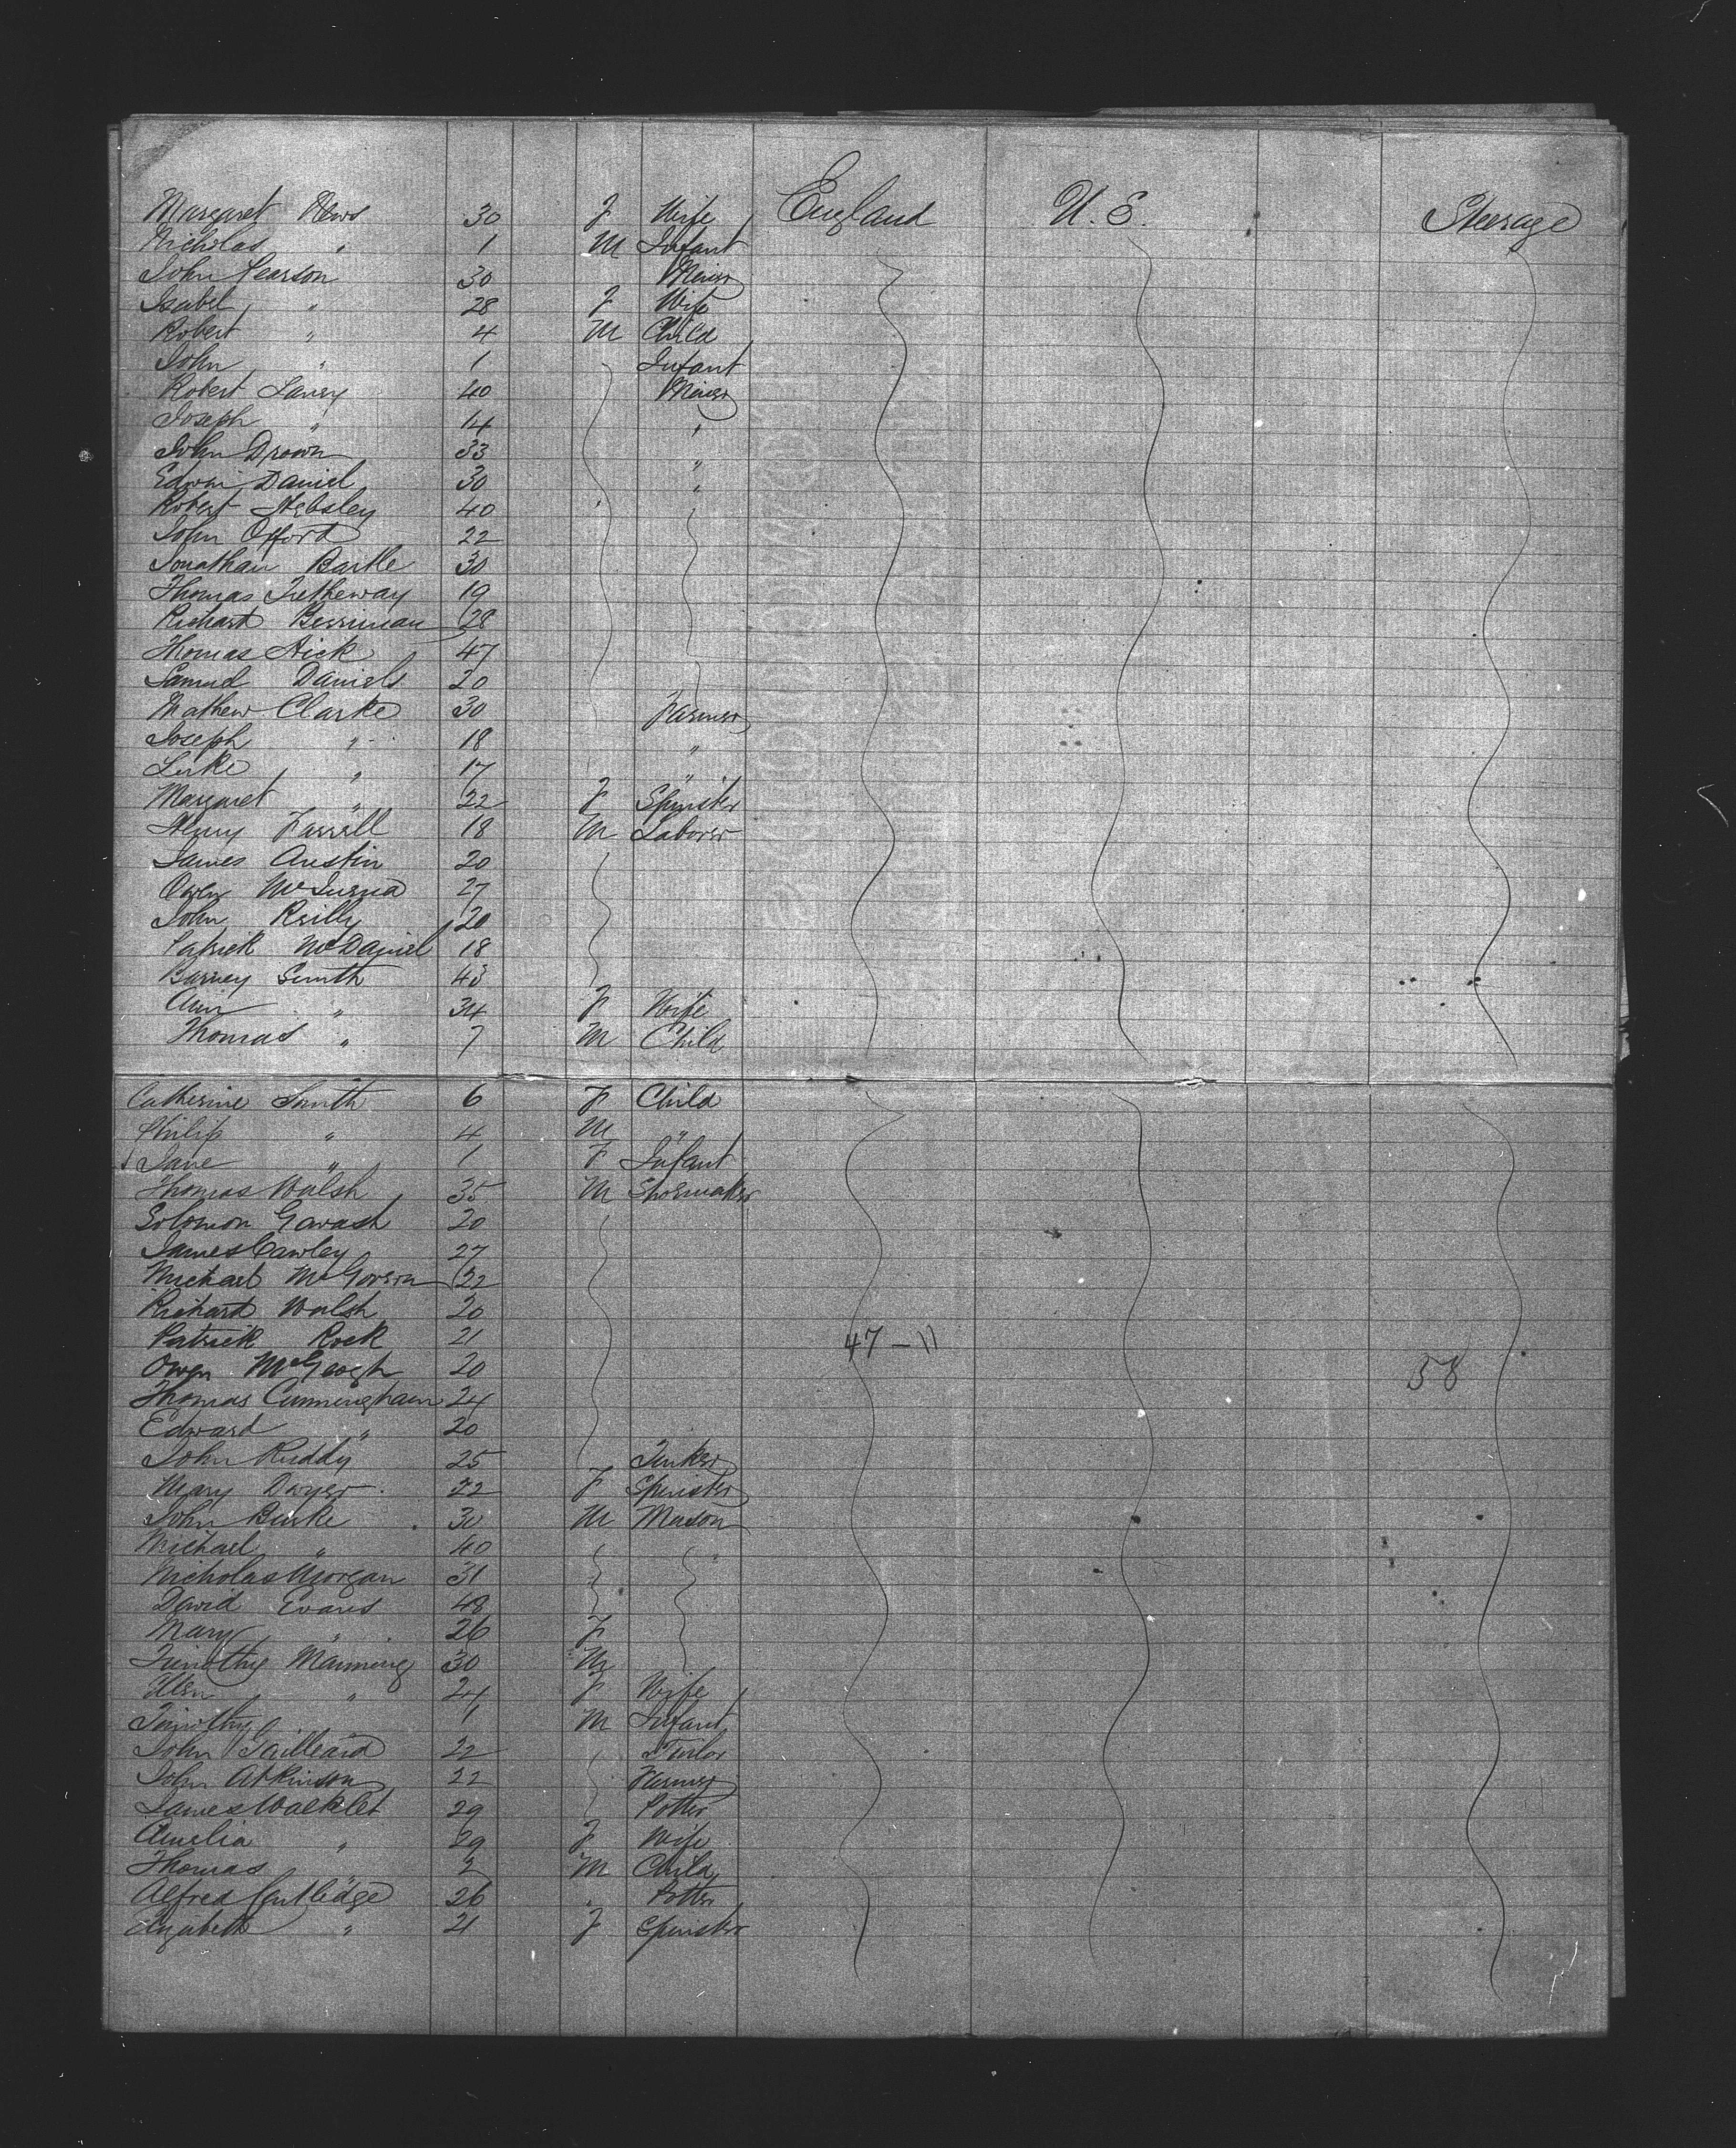 Margaret Hews 30 F Wife England U.S. Steerage
Nicholas " 1 M Infant
John Pearson 30 Miner
Isabel " 28 F Wife
Robert " 4 M Child
John " 1 Infant
Robert 40 Miner
Joseph " 14 "
John Drown 33 "
Edwin Daniel 30 "
Robert 40
John Offord 22
Jonathan Bartle 30
Thomas Tretheway 19
Richard Berriman 28
Thomas Hick 47
Samuel Daniels 20
Mathew Clarke 30 Farmer
Joseph " 18 "
Luke " 17 "
Margaret " 22 F Spinster
Henry Farrell 18 M Laborer
James Austin 20
Owen 27
John Reilly 20
Patrick McDaniel 18
Barney Smith 43
Ann " 34 F Wife
Thomas " 7 M Child
Catherine Smith 6 F Child
Philip " 4 M "
Jane " 1 F Infant
Thomas Walsh 35 M Shoemaker
Solomon 20
James Cawley 27
Michael McGovern 22
Richard Walsh 20
Patrick Rock 21 47 – 11
Owen McGeogh 20 58
Thomas Cunningham 24
Edward " 20
John Ruddy 25 Tinker
Mary Dwyer 22 F Spinster
John Burke 30 M Mason
Michael " 40 "
Nicholas Morgan 31
David Evans 48
Mary " 26 F
Timothy Manning 30 M
Ellen " 24 F Wife
Timothy 1 M Infant
John Gailleard 22 Tailor
John Atkinson 22 Farmer
James Walklet 29 Potter
Amelia " 29 F Wife
Thomas " 2 M Child
Alfred Cutledge 26 " Potter
Elizabeth " 21 F Spinster